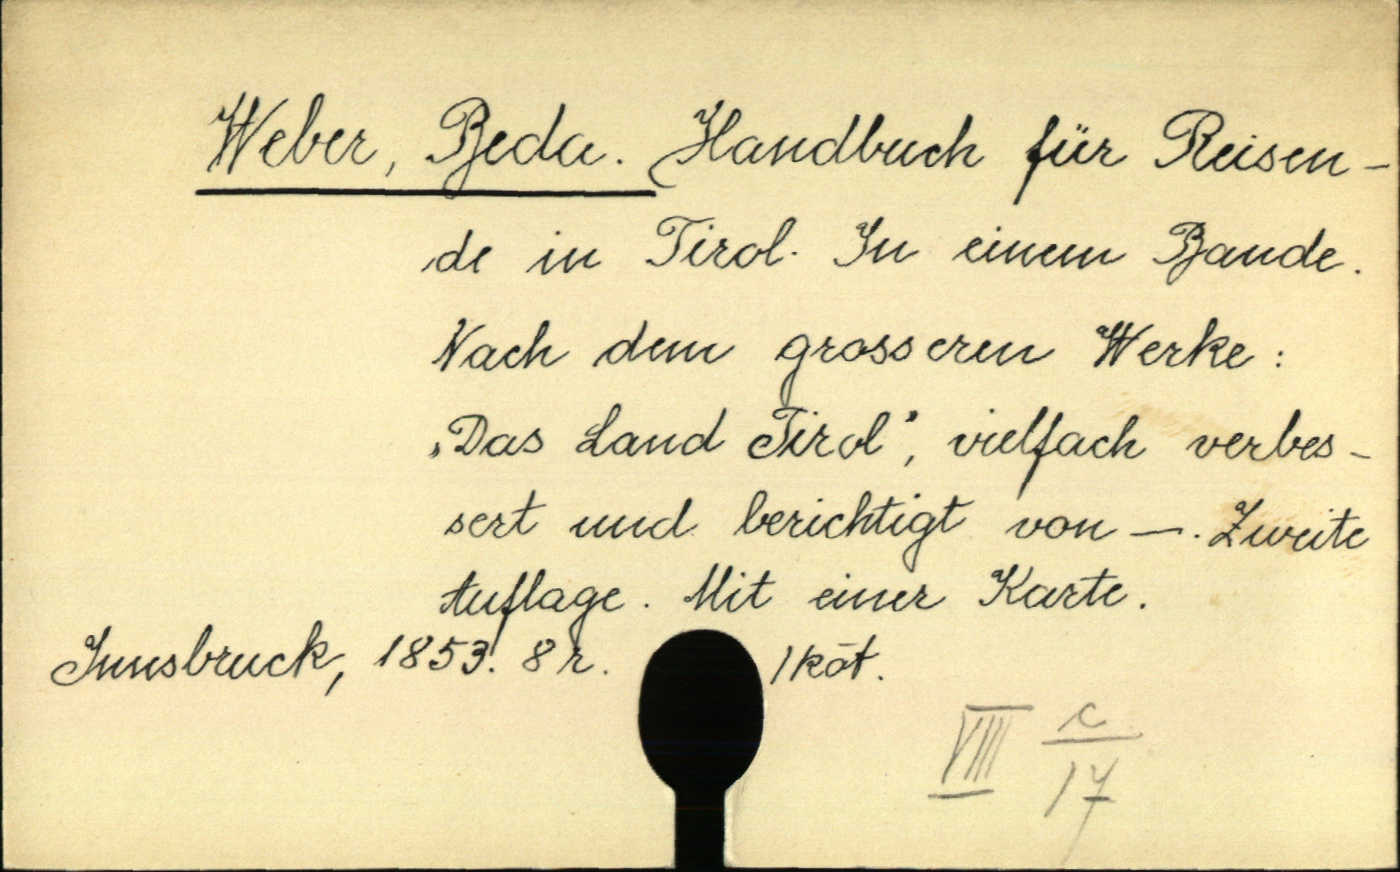 Weber, Beda. Handbuch für Reisen-
de in Tirol. In einem Bande.
Nach dem grosseren Werke:
„Das Land Tirol", vielfach verbes-
sert und berichtigt von —. Zweite
Auflage. Mit einer Karte.
Innsbruck, 1853. 8r. 1 köt.
VIII c/17